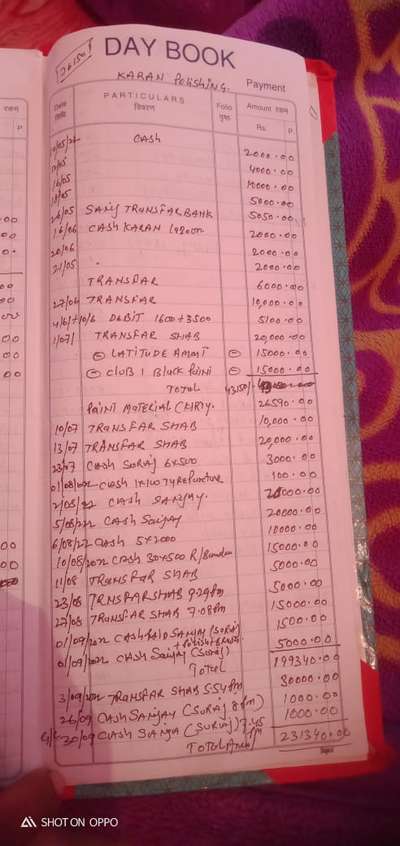 26150/
DAY BOOK
KARAN Polishing. Payment
Date तिथि PARTICULARS विवरण Folio पृष्ठ Amount रकम
Rs. P.
Cash 2000.00
4000.00
16/05 10000.00
18/05 5000.00
26/05 SANJ TRANSFAR BANK 5050.00
16/06 CASH KARAN 2000.00
20/06 2000.00
21/05 2000.00
TRANSFAR 6000.00
27/06 TRANSFAR 10,000.00
4/6/+10/6 DEBIT 1600+3500 5100.00
1/07/ TRANSFAR SHAB 20,000.00
⊖ LATITUDE AMMT ⊖ 15000.00
⊖ CLUB 1 Black Paint ⊖ 15000.00
TOTAL 43150/-
Paint MATERIAL 26590.00
10/07 TRANSFAR SHAB 10,000.00
13/07 TRANSFAR SHAB 20,000.00
23/07 CASH SURAJ 6x500 3000.00
01/08/2022 CASH 1x100 Tyre Puncture 100.00
2/08/22 CASH SANJAY. 000.00
5/08/22 CASH Sanjay 20000.00
6/08/22 CASH 5x2000 10000.00
10/08/2022 CASH 30x500 R/Bandan 15000.00
11/08 TRANSFAR SHAB 5000.00
23/08 TRNSFAR SHAB 9:29pm 5000.00
27/08 TRANSFAR SHAB 7.08pm 15000.00
01/09/2022 CASH PAID SANJAY (SURAJ) 1500.00
01/09/2022 CASH Sanjay (Suraj) 5000.00
TOTAL 199340.00
3/09/2022 TRANSFAR SHAB 5.54pm 30000.00
26/09 CASH SANJAY (SURAJ 8pm) 1000.00
30/09 CASH SANJA (SURAJ) 7.45 pm 1000.00
TOTAL 231340.00
SHOT ON OPPO